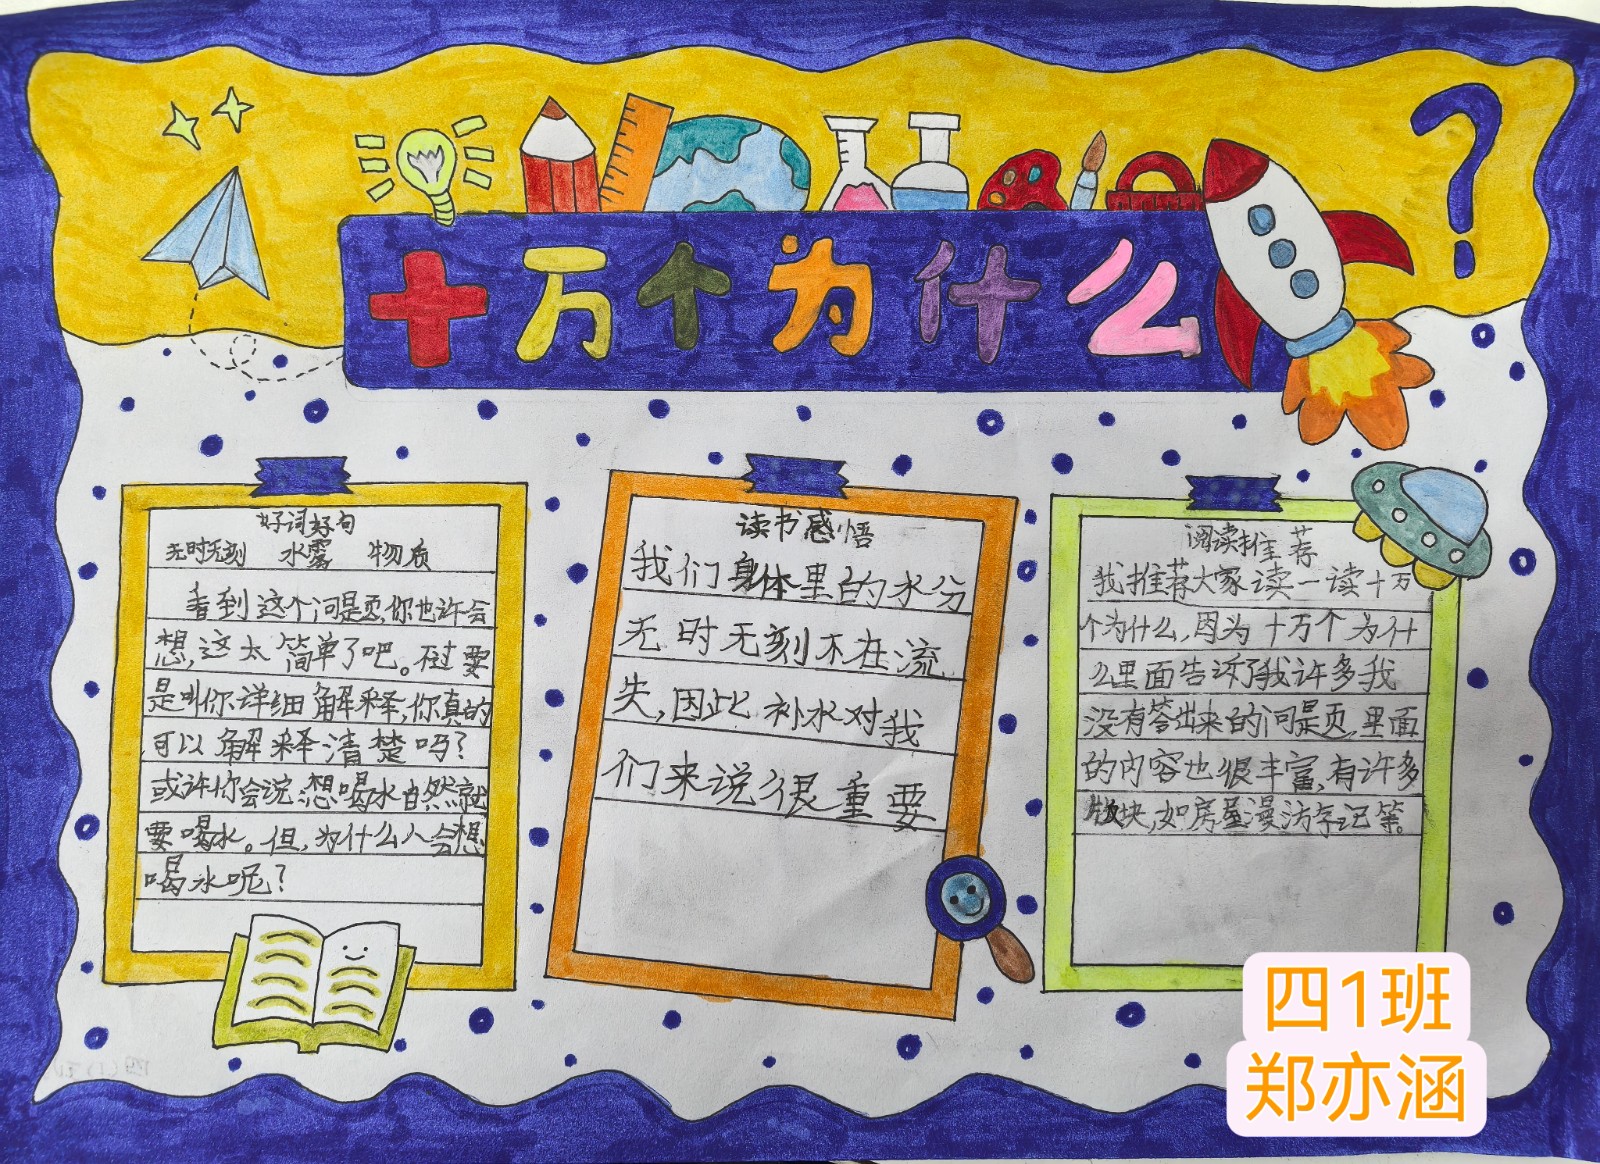 十万个为什么
好词好句
无时无刻 水雾 物质
看到这个问题,你也许会
想,这太简单了吧。不过要
是叫你详细解释,你真的
可以解释清楚吗?
或许你会说:想喝水自然就
要喝水。但,为什么人会想
喝水呢?
读书感悟
我们身体里的水分
无时无刻不在流
失,因此补水对我
们来说很重要
阅读推荐
我推荐大家读一读十万
个为什么,因为十万个为什
么里面告诉了我许多我
没有答出来的问题,里面
的内容也很丰富,有许多
版块,如房屋漫游笔记等。
四1班
郑亦涵